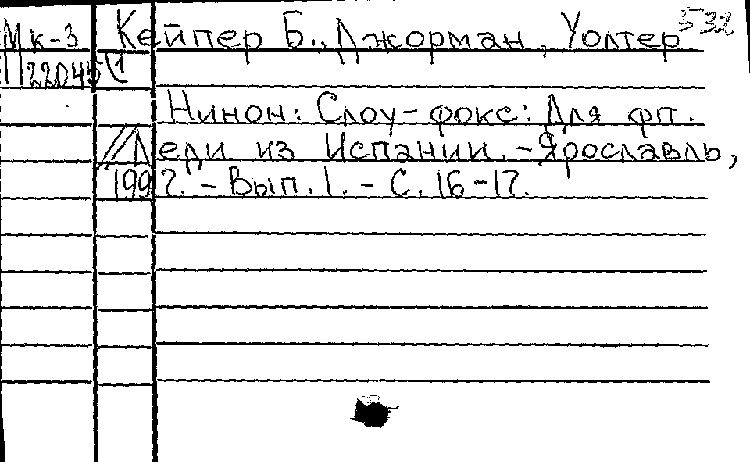 Мк-3 Кейпер Б., Джорман, Уолтер 532
П22045(1
Нинон: Слоу-фокс: Для фп.
//Леди из Испании.-Ярославль,
1992.-Вып.1.-С.16-17.